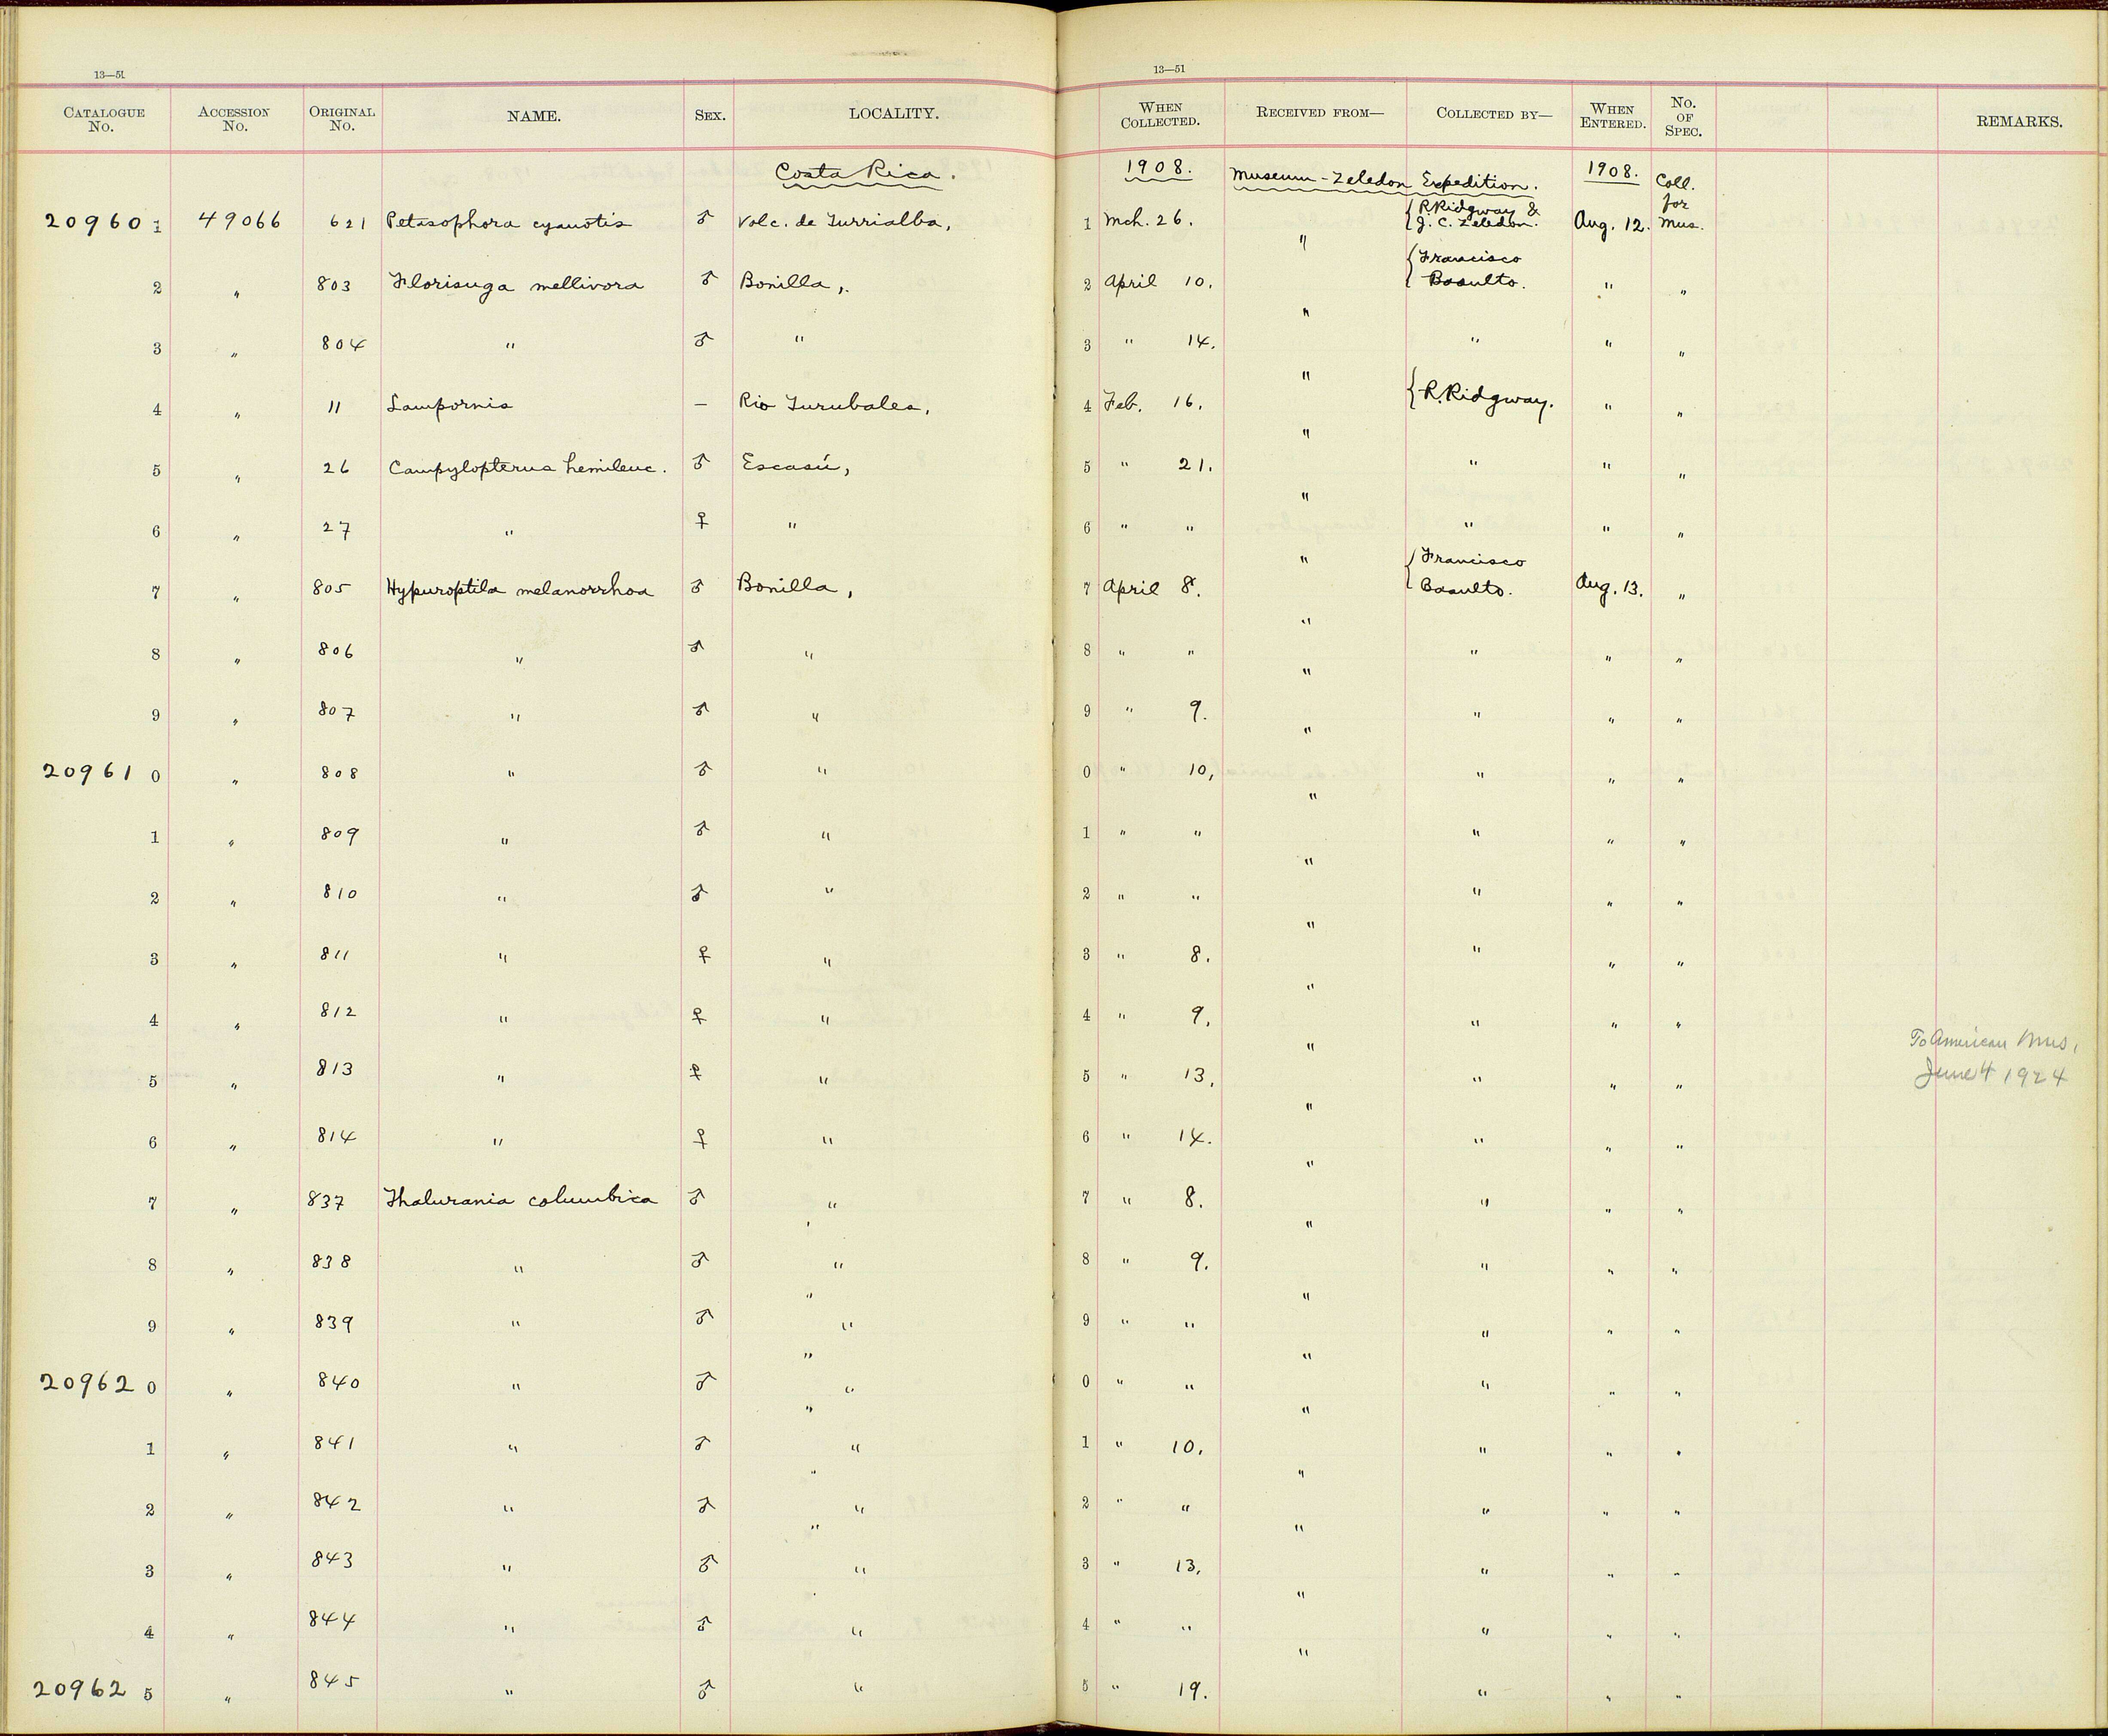 13—51
13—51
CATALOGUE No. ACCESSION No. ORIGINAL No. NAME. SEX. LOCALITY. WHEN COLLECTED. RECEIVED FROM— COLLECTED BY— WHEN ENTERED. No. OF SPEC. REMARKS.
Costa Rica. 1908. Museum-Zeledon Expedition. 1908. Coll. for
209601 49066 621 Petasophora cyanotis ♂ Volc. de Turrialba, 1 Mch. 26. " { R. Ridgway & J. C. Zeledon. Aug. 12. Mus.
2 " 803 Florisuga mellivora ♂ Bonilla, 2 April 10. " { Francisco Basulto. " "
3 " 804 " ♂ " 3 " 14. " " " "
4 " 11 Lampornis — Rio Turubales, 4 Feb. 16. " { R. Ridgway. " "
5 " 26 Campylopterus hemileuc. ♂ Escasú, 5 " 21. " " " "
6 " 27 " ♀ " 6 " " " " " "
7 " 805 Hypuroptila melanorrhoa ♂ Bonilla, 7 April 8. " { Francisco Basulto. Aug. 13. "
8 " 806 " ♂ " 8 " " " " " "
9 " 807 " ♂ " 9 " 9. " " " "
209610 " 808 " ♂ " 0 " 10, " " " "
1 " 809 " ♂ " 1 " " " " " "
2 " 810 " ♂ " 2 " " " " " "
3 " 811 " ♀ " 3 " 8. " " " "
4 " 812 " ♀ " 4 " 9, " " " "
5 " 813 " ♀ " 5 " 13, " " " " To American Mus, June 4 1924
6 " 814 " ♀ " 6 " 14. " " " "
7 " 837 Thalurania columbica ♂ " 7 " 8. " " " "
8 " 838 " ♂ " 8 " 9. " " " "
9 " 839 " ♂ " 9 " " " " " "
209620 " 840 " ♂ " 0 " " " " " "
1 " 841 " ♂ " 1 " 10, " " " "
2 " 842 " ♂ " 2 " " " " " "
3 " 843 " ♂ " 3 " 13, " " " "
4 " 844 " ♂ " 4 " " " " " "
209625 " 845 " ♂ " 5 " 19. " " "